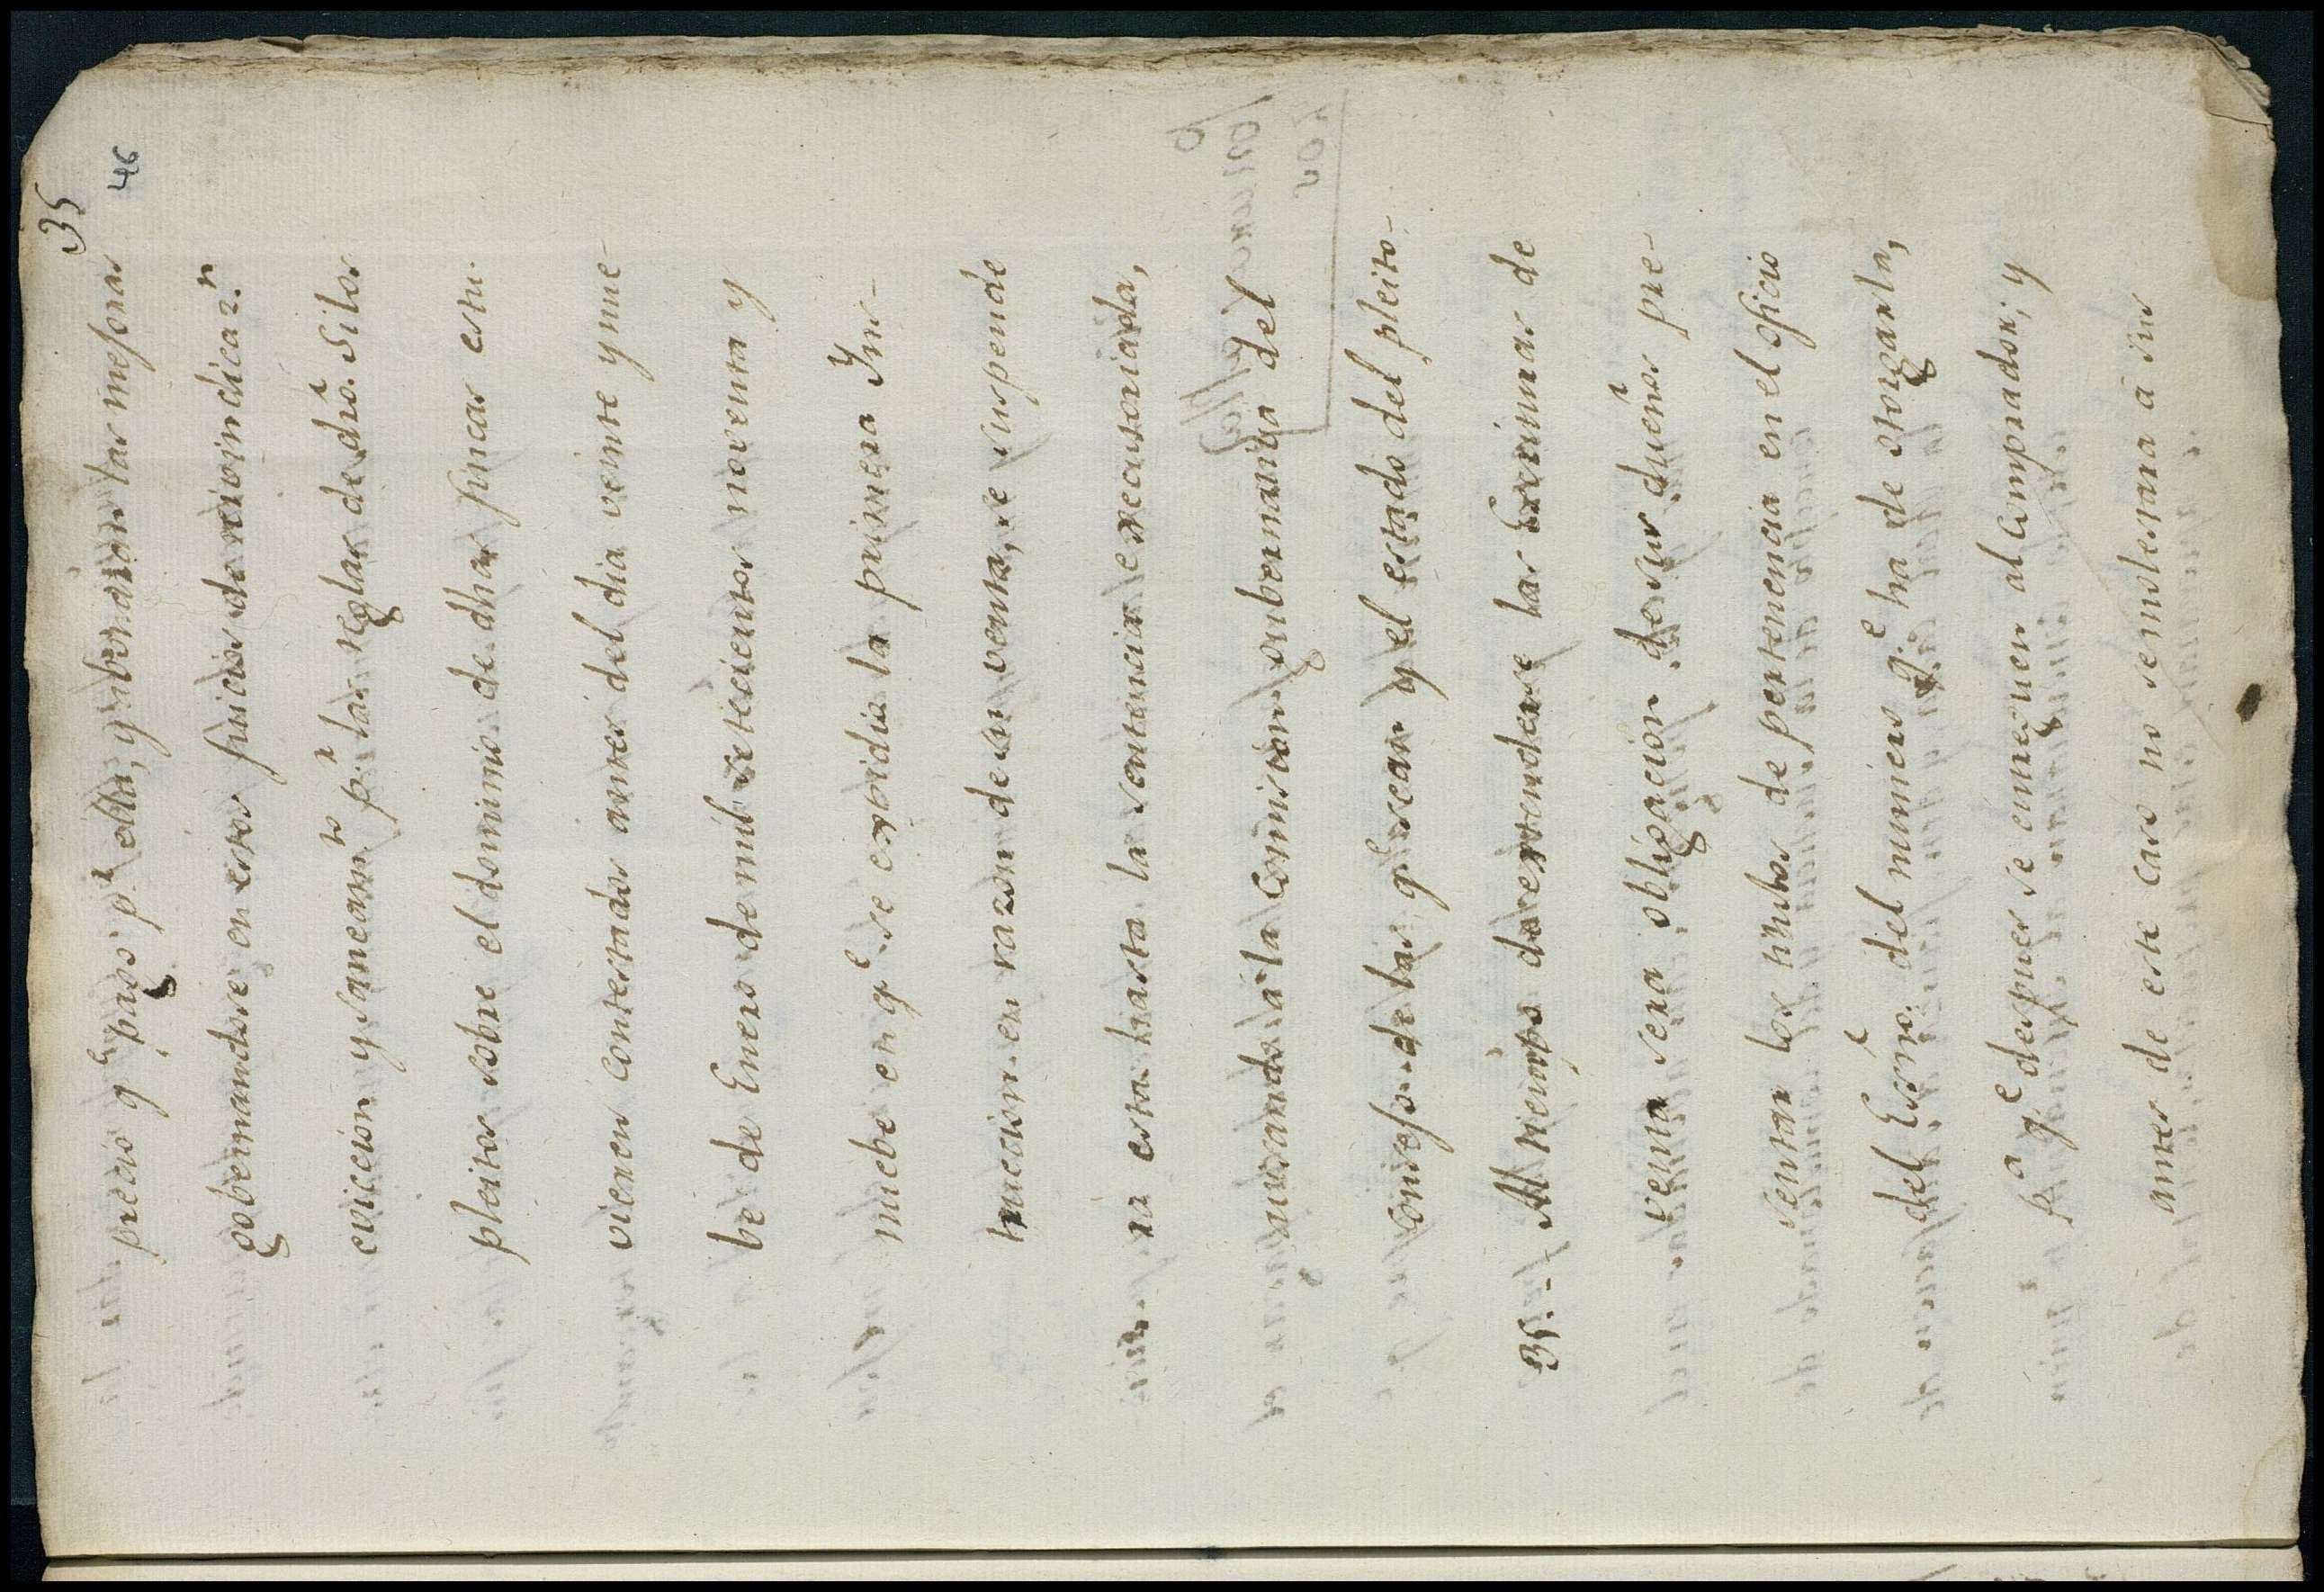 35
46
precio q.e pago p.r ella, y abonaran las mejoras
gobernandose en estos juicios de reivindicaz.n
eviccion y saneam.to p.r las reglas de dro. Si los
pleitos sobre el dominio de dhas fincas estu-
vieren contestados antes del dia veinte y nue-
be de Enero de mil setecientos noventa y
nuebe en q.e se expidio la primera Ins-
truccion en razon de su venta, se suspende
ra esta hasta la sentencia executoriada,
avisando a la Comision gubernativa del
Consejo de las q.e sean y el estado del pleito-
35.- Al tiempo de extenderse las Escrituras de
venta sera obligacion de sus dueños pre-
sentar los titulos de pertenencia en el oficio
del Essno. del numero q.e ha de otorgarla,
p.a q.e despues se entreguen al Comprador; y
antes de este caso no se molestara a sus